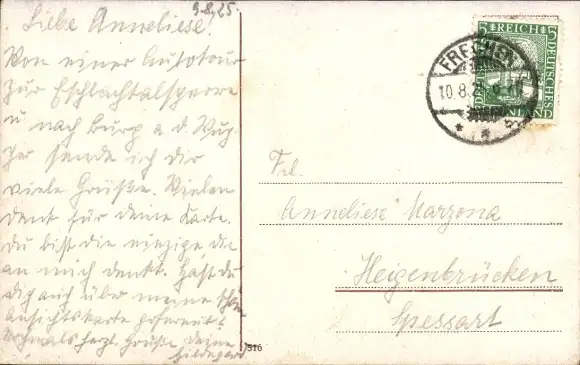 9.8.25
Liebe Anneliese!
Von einer Autotour
zur Eschbachtalsperre
u nach Burg a. d. Wup-
per sende ich dir
viele Grüße. Vielen
Dank für deine Karte.
Du bist die einzige, die
an mich denkt. Hast du
dich auch über meine
Ansichtskarte gefreut?
Nochmals herzl. Grüße deine
Hildegard
5 REICH 5
DEUTSCHES
RHEINLAND
FRECHEN
10.8.
Frl.
Anneliese Marzona
Heigenbrücken
Spessart
516